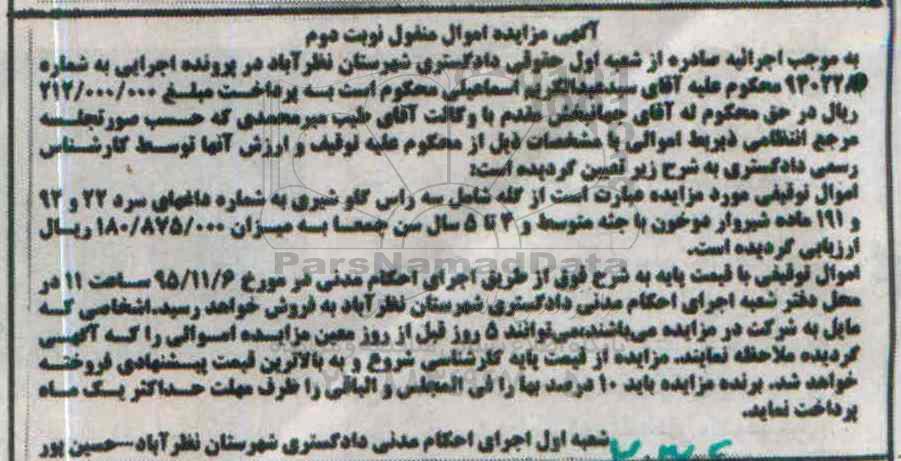 آگهی مزایده اموال منقول نوبت دوم
به موجب اجرائیه صادره از شعبه اول حقوقی دادگستری شهرستان نظرآباد در پرونده اجرایی به شماره
محکوم علیه آقای سیدعبدالکریم اسماعیلی محکوم است به پرداخت مبلغ ۲۱۲/۰۰۰/۰۰۰
ریال در حق محکوم له آقای جهانبخش مقدم با وکالت آقای طیب میرمحمدی که حسب صورتجلسه
مرجع انتظامی ذیربط اموالی با مشخصات ذیل از محکوم علیه توقیف و ارزش آنها توسط کارشناس
رسمی دادگستری به شرح زیر تعیین گردیده است:
اموال توقیفی مورد مزایده عبارت است از گله شامل سه راس گاو شیری به شماره داغهای سرد ۲۲ و ۹۲
و ۱۹۱ ماده شیروار دوخون با جثه متوسط و ۴ تا ۵ سال سن جمعا به میزان ۱۸۰/۸۷۵/۰۰۰ ریال
ارزیابی گردیده است.
اموال توقیفی با قیمت پایه به شرح فوق از طریق اجرای احکام مدنی در مورخ ۹۵/۱۱/۶ ساعت ۱۱ در
محل دفتر شعبه اجرای احکام مدنی دادگستری شهرستان نظرآباد به فروش خواهد رسید.اشخاصی که
مایل به شرکت در مزایده می‌باشند،می‌توانند ۵ روز قبل از روز معین مزایده اموالی را که آگهی
گردیده ملاحظه نمایند. مزایده از قیمت پایه کارشناسی شروع و به بالاترین قیمت پیشنهادی فروخته
خواهد شد. برنده مزایده باید ۱۰ درصد بها را فی المجلس و الباقی را ظرف مهلت حداکثر یک ماه
پرداخت نماید.
شعبه اول اجرای احکام مدنی دادگستری شهرستان نظرآباد—حسین پور
ParsNamadData